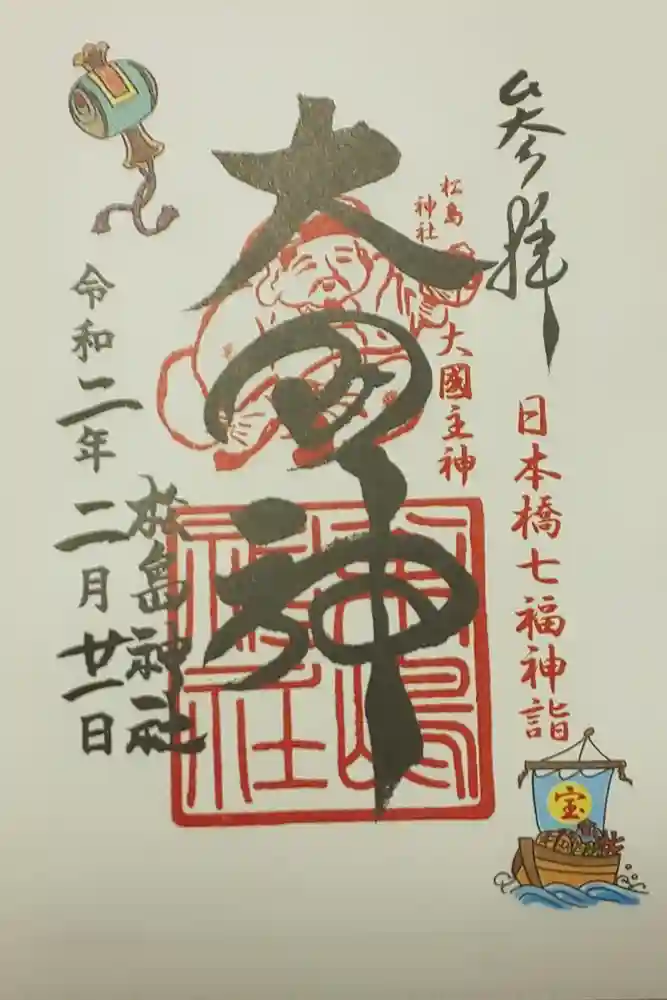 参拝
日本橋七福神詣
宝
松島
神社
大國主神
大黒神
松島神社
松島神社
令和二年二月廿一日